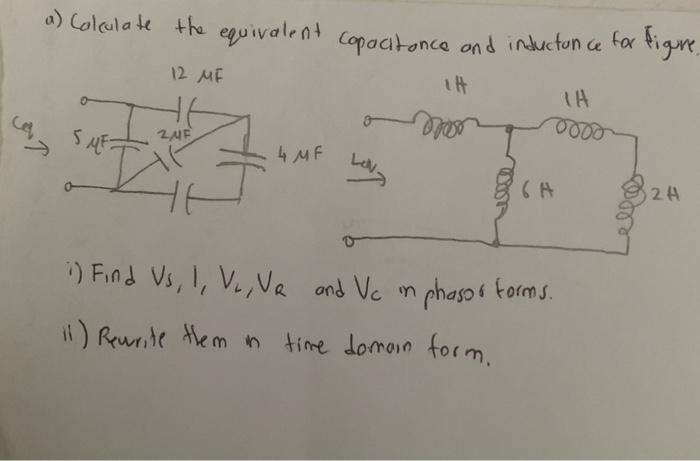 a) Calculate the equivalent capacitance and inductance for Figure.
12 MF
1H
1H
Ceq
5 MF
2MF
4 MF
Leq
6 H
2H
i) Find Vs, I, VL, VR and Vc in phasor forms.
ii) Rewrite them in time domain form.